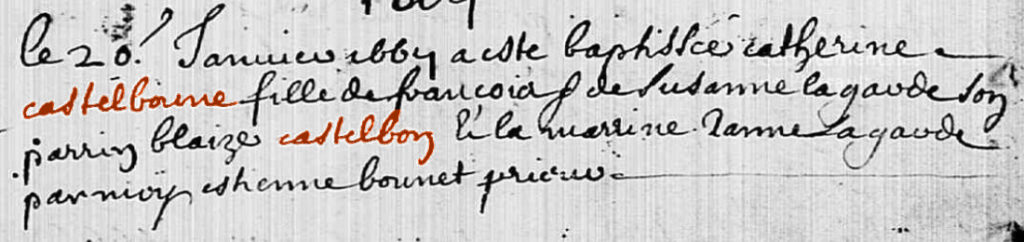 le 20.e Januier 1664 a este baptissée catherine
castelbonne fille de francois & de susanne lagarde son
parrin blaize castelbon & la marrine Janne Lagarde
par moy estienne bonnet prieur